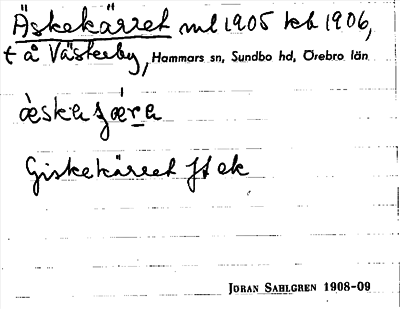 Äskekärret ml 1905 kb 1906,
t å Västerby, Hammars sn, Sundbo hd, Örebro län
Giskekärret
JORAN SAHLGREN 1908-09